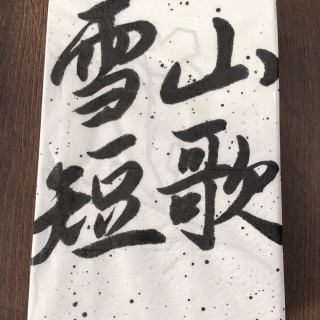 雪山
短歌